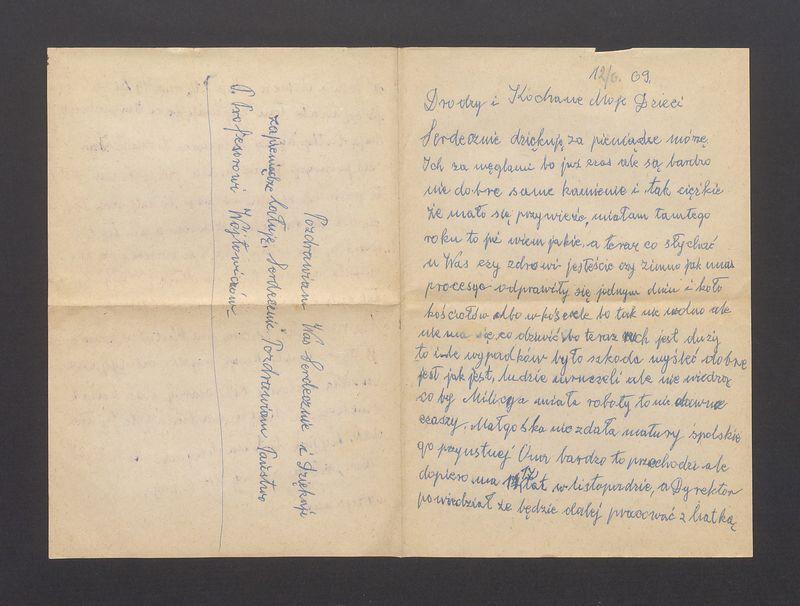 12/6. 69.
Drodzy i Kochane Moje Dzieci
Serdecznie dziękuję za pieniądze
Ich za węglami bo już czas ale są bardzo
nie dobre same kamienie i tak ciężkie
że mało się przywiezie, miałam tamtego
roku to już wiem jakie, a teraz co słychać
u Was czy zdrowi jesteście czy zimno jak u nas
procesye odprawiły się jednym dniu i koło
kościołów albo w kościele bo tak nie wolno ale
nie ma się co dziwić bo teraz ruch jest duży
to ile wypadków było szkoda myśleć dobrze
jest jak jest, ludzie mruczeli ale nie wiedzą
co by Milicya miała roboty to nie dawne
czasy. Małgośka nie zdała matury z polskie
go przy ustnej Ona bardzo to przechodzi ale
dopiero ma lat w listopadzie, a Dyrektor
powiedział że będzie dalej pracować z Matką
Pozdrawiam Was Serdecznie i Dziękuję
za pieniądze Całuję, Serdecznie Pozdrawiam Państwo
P. Profesorowi Wójtowiczów